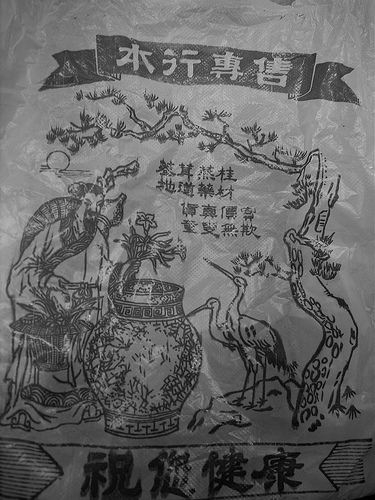 本行專售
蔘茸燕桂
地道藥材
貨真價實
童叟無欺
祝您健康